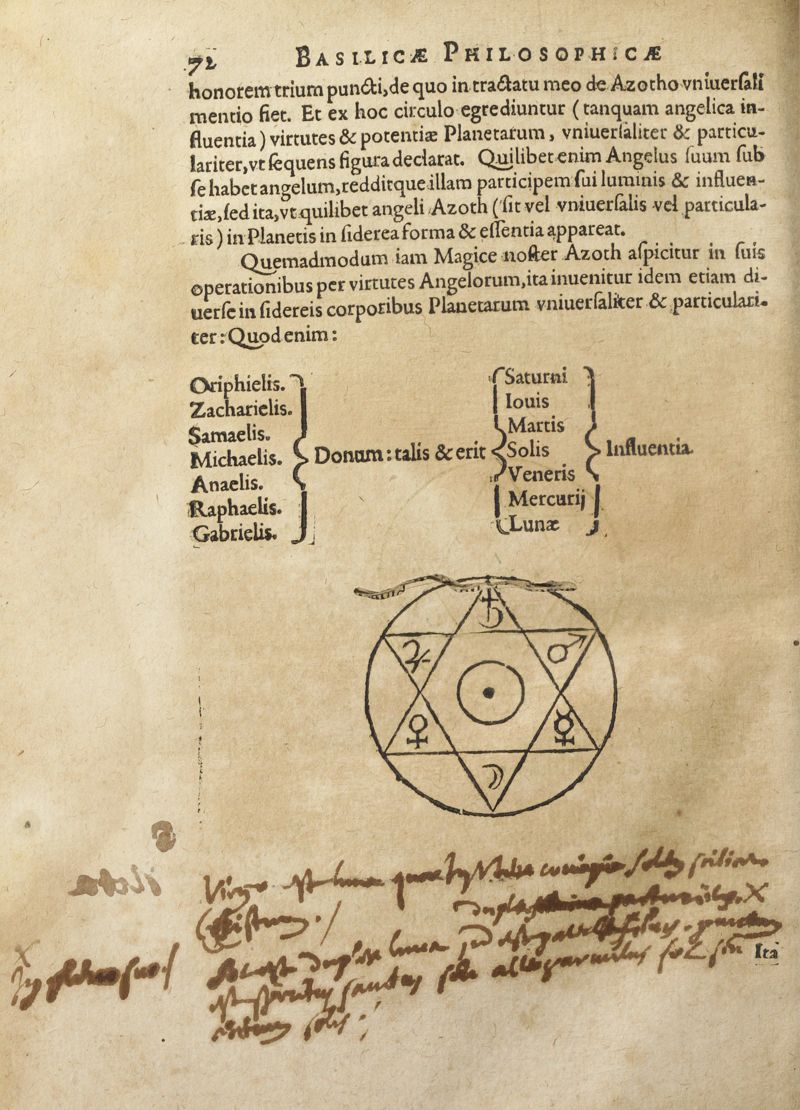 72 BASILICÆ PHILOSOPHICÆ
honorem trium puncti, de quo in tractatu meo de Azotho vniuerſali
mentio fiet. Et ex hoc circulo egrediuntur (tanquam angelica in-
fluentia) virtutes & potentiæ Planetarum, vniuerſaliter & particu-
lariter, vt ſequens figura declarat. Quilibet enim Angelus ſuum ſub
ſe habet angelum, redditque illam participem ſui luminis & influen-
tiæ, ſed ita, vt quilibet angeli Azoth (ſit vel vniuerſalis vel particula-
ris) in Planetis in ſiderea forma & eſſentia appareat.
Quemadmodum iam Magice noſter Azoth aſpicitur in ſuis
operationibus per virtutes Angelorum, ita inuenitur idem etiam di-
uerſe in ſidereis corporibus Planetarum vniuerſaliter & particulari-
ter: Quod enim:
Oriphielis.
Zacharielis.
Samaelis.
Michaelis.
Anaelis.
Raphaelis.
Gabrielis.
Donum: talis & erit
Saturni
Iouis
Martis
Solis
Veneris
Mercurij
Lunæ
Influentia.
♄
♃ ♂
☉
♀ ☿
☽
Virgo est luna
est duplex luna
est spiritus sanctus
solis
Ita